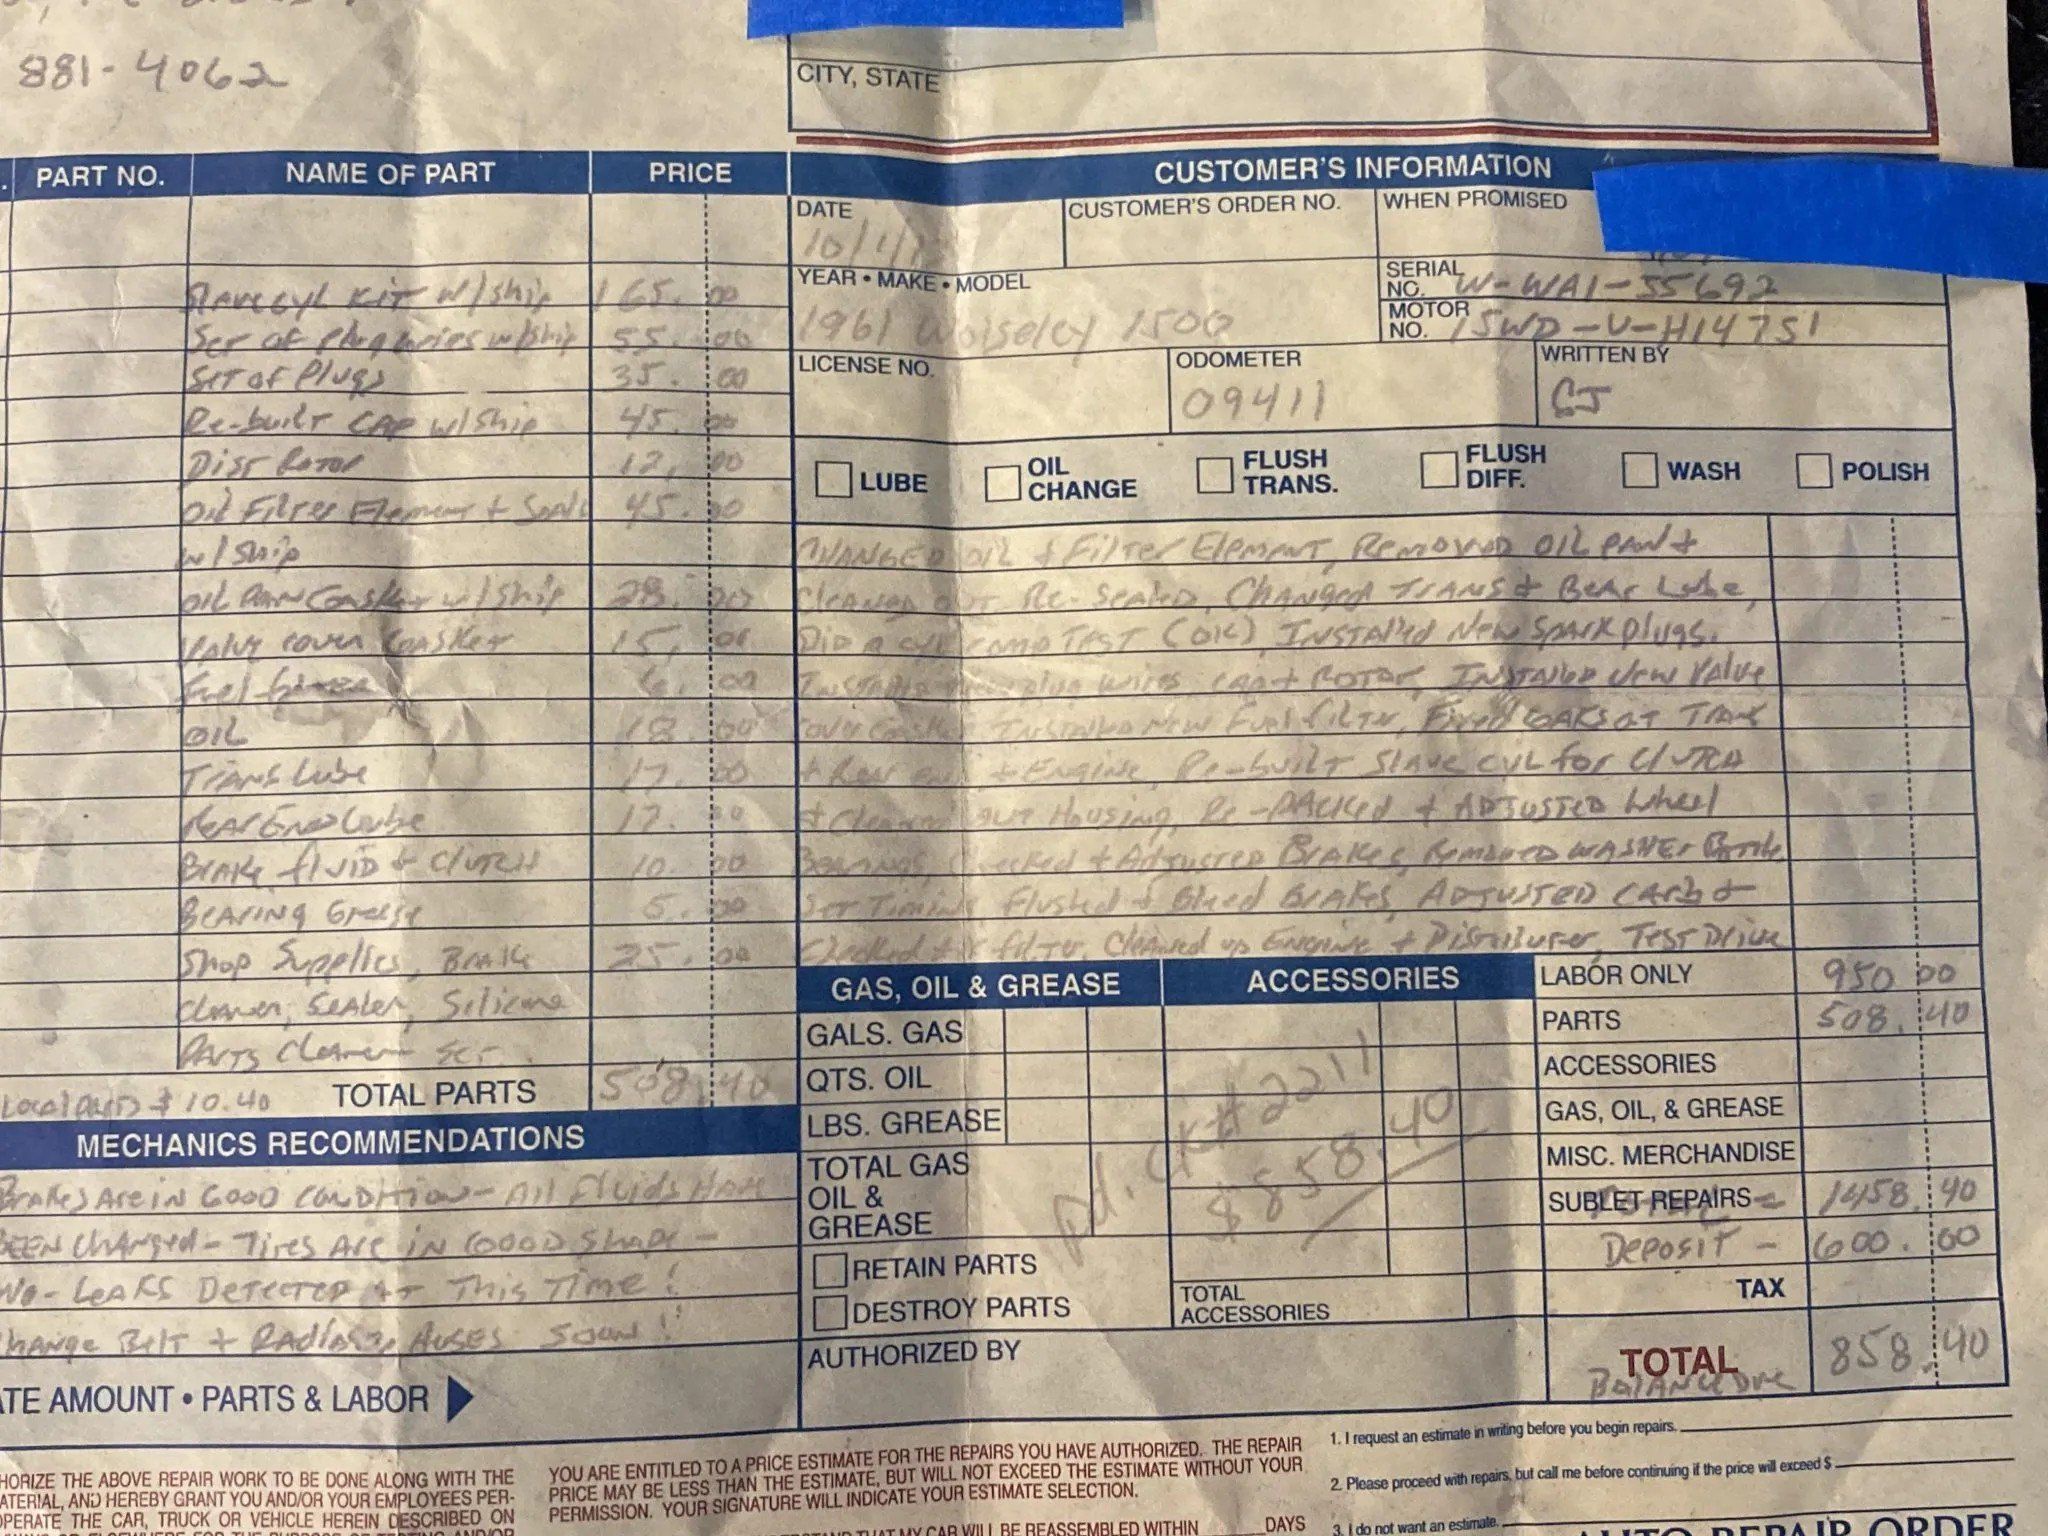 881-4062
CITY, STATE
PART NO. NAME OF PART PRICE
Slave cyl Kit w/ship 165.00
Set of Plug wires w/ship 55.00
Set of Plugs 35.00
Re-built CAP w/ship 45.00
Dist Rotor 12.00
Oil Filter Element + Seals 45.00
w/ship
Oil PAN Gasket w/ship 28.00
Valve cover Gasket 15.00
Fuel 6.00
OIL 18.00
TRANS Lube 17.00
Rear End Lube 17.00
BRAKE fluid + Clutch 10.00
BEARING Grease 5.00
Shop Supplies, Brake 25.00
Cleaner, Sealer, Silicone
PARTS Cleaner
Local parts $10.40 TOTAL PARTS 508.40
MECHANICS RECOMMENDATIONS
Brakes Are in GOOD CONDITION - All Fluids Have
BEEN Changed - Tires Are in GOOD Shape -
No - LEAKS DETECTED AT This TIME!
Change Belt + Radiator Hoses Soon!
TE AMOUNT • PARTS & LABOR
CUSTOMER'S INFORMATION
DATE CUSTOMER'S ORDER NO. WHEN PROMISED
10/4/
YEAR • MAKE • MODEL SERIAL NO. W-WA1-55692
1961 Wolseley 1500 MOTOR NO. 15WD-U-H14751
LICENSE NO. ODOMETER WRITTEN BY
09411
LUBE OIL CHANGE FLUSH TRANS. FLUSH DIFF. WASH POLISH
CHANGED OIL + Filter Element, Removed OIL PAN +
Cleaned out Re-Sealed, Changed TRANS + Rear Lube,
Did a cyl comp TEST (OK), INSTAlled New SpArk plugs.
Installed New plug wires cap + ROTOR, INSTAlled New VAlve
cover Gasket Installed New Fuel filter, Fixed LEAKS at TRANS
+ Rear end + Engine, Re-built Slave cyl for Clutch
+ Cleaned out Housing, Re-PACKed + ADJUSTED Wheel
BEARINGS, Checked + Adjusted BRAKES, Removed WASHER Bottle
Set Timing Flushed + Bleed BRAKES, ADJUSTED CARB +
Checked Air filter, Cleaned up Engine + Distributer, TEST Drive
GAS, OIL & GREASE ACCESSORIES LABOR ONLY 950.00
GALS. GAS PARTS 508.40
QTS. OIL ACCESSORIES
LBS. GREASE GAS, OIL, & GREASE
Pd. CK# 2211
$858.40
TOTAL GAS OIL & GREASE MISC. MERCHANDISE
SUBLET REPAIRS
TOTAL - 1458.40
DEPOSIT - 600.00
RETAIN PARTS
DESTROY PARTS TOTAL ACCESSORIES TAX
AUTHORIZED BY TOTAL 858.40
BalAnce Due
HORIZE THE ABOVE REPAIR WORK TO BE DONE ALONG WITH THE
ATERIAL, AND HEREBY GRANT YOU AND/OR YOUR EMPLOYEES PER-
OPERATE THE CAR, TRUCK OR VEHICLE HEREIN DESCRIBED ON
YOU ARE ENTITLED TO A PRICE ESTIMATE FOR THE REPAIRS YOU HAVE AUTHORIZED. THE REPAIR
PRICE MAY BE LESS THAN THE ESTIMATE, BUT WILL NOT EXCEED THE ESTIMATE WITHOUT YOUR
PERMISSION. YOUR SIGNATURE WILL INDICATE YOUR ESTIMATE SELECTION.
THAT MY CAR WILL BE REASSEMBLED WITHIN DAYS
1. I request an estimate in writing before you begin repairs.
2. Please proceed with repairs, but call me before continuing if the price will exceed $
3. I do not want an estimate.
AUTO REPAIR ORDER